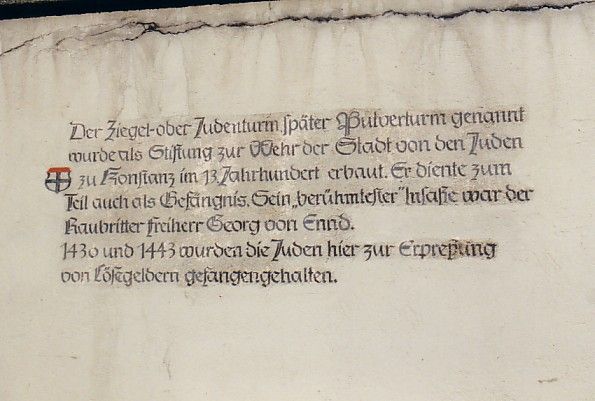 Der Ziegel-oder Judenturm später Pulverturm genannt
wurde als Stiftung zur Wehr der Stadt von den Juden
zu Konstanz im 13. Jahrhundert erbaut. Er diente zum
Teil auch als Gefängnis. Sein „berühmtester" Insasse war der
Raubritter Freiherr Georg von Ennd.
1430 und 1443 wurden die Juden hier zur Erpreßung
von Lösegeldern gefangengehalten.